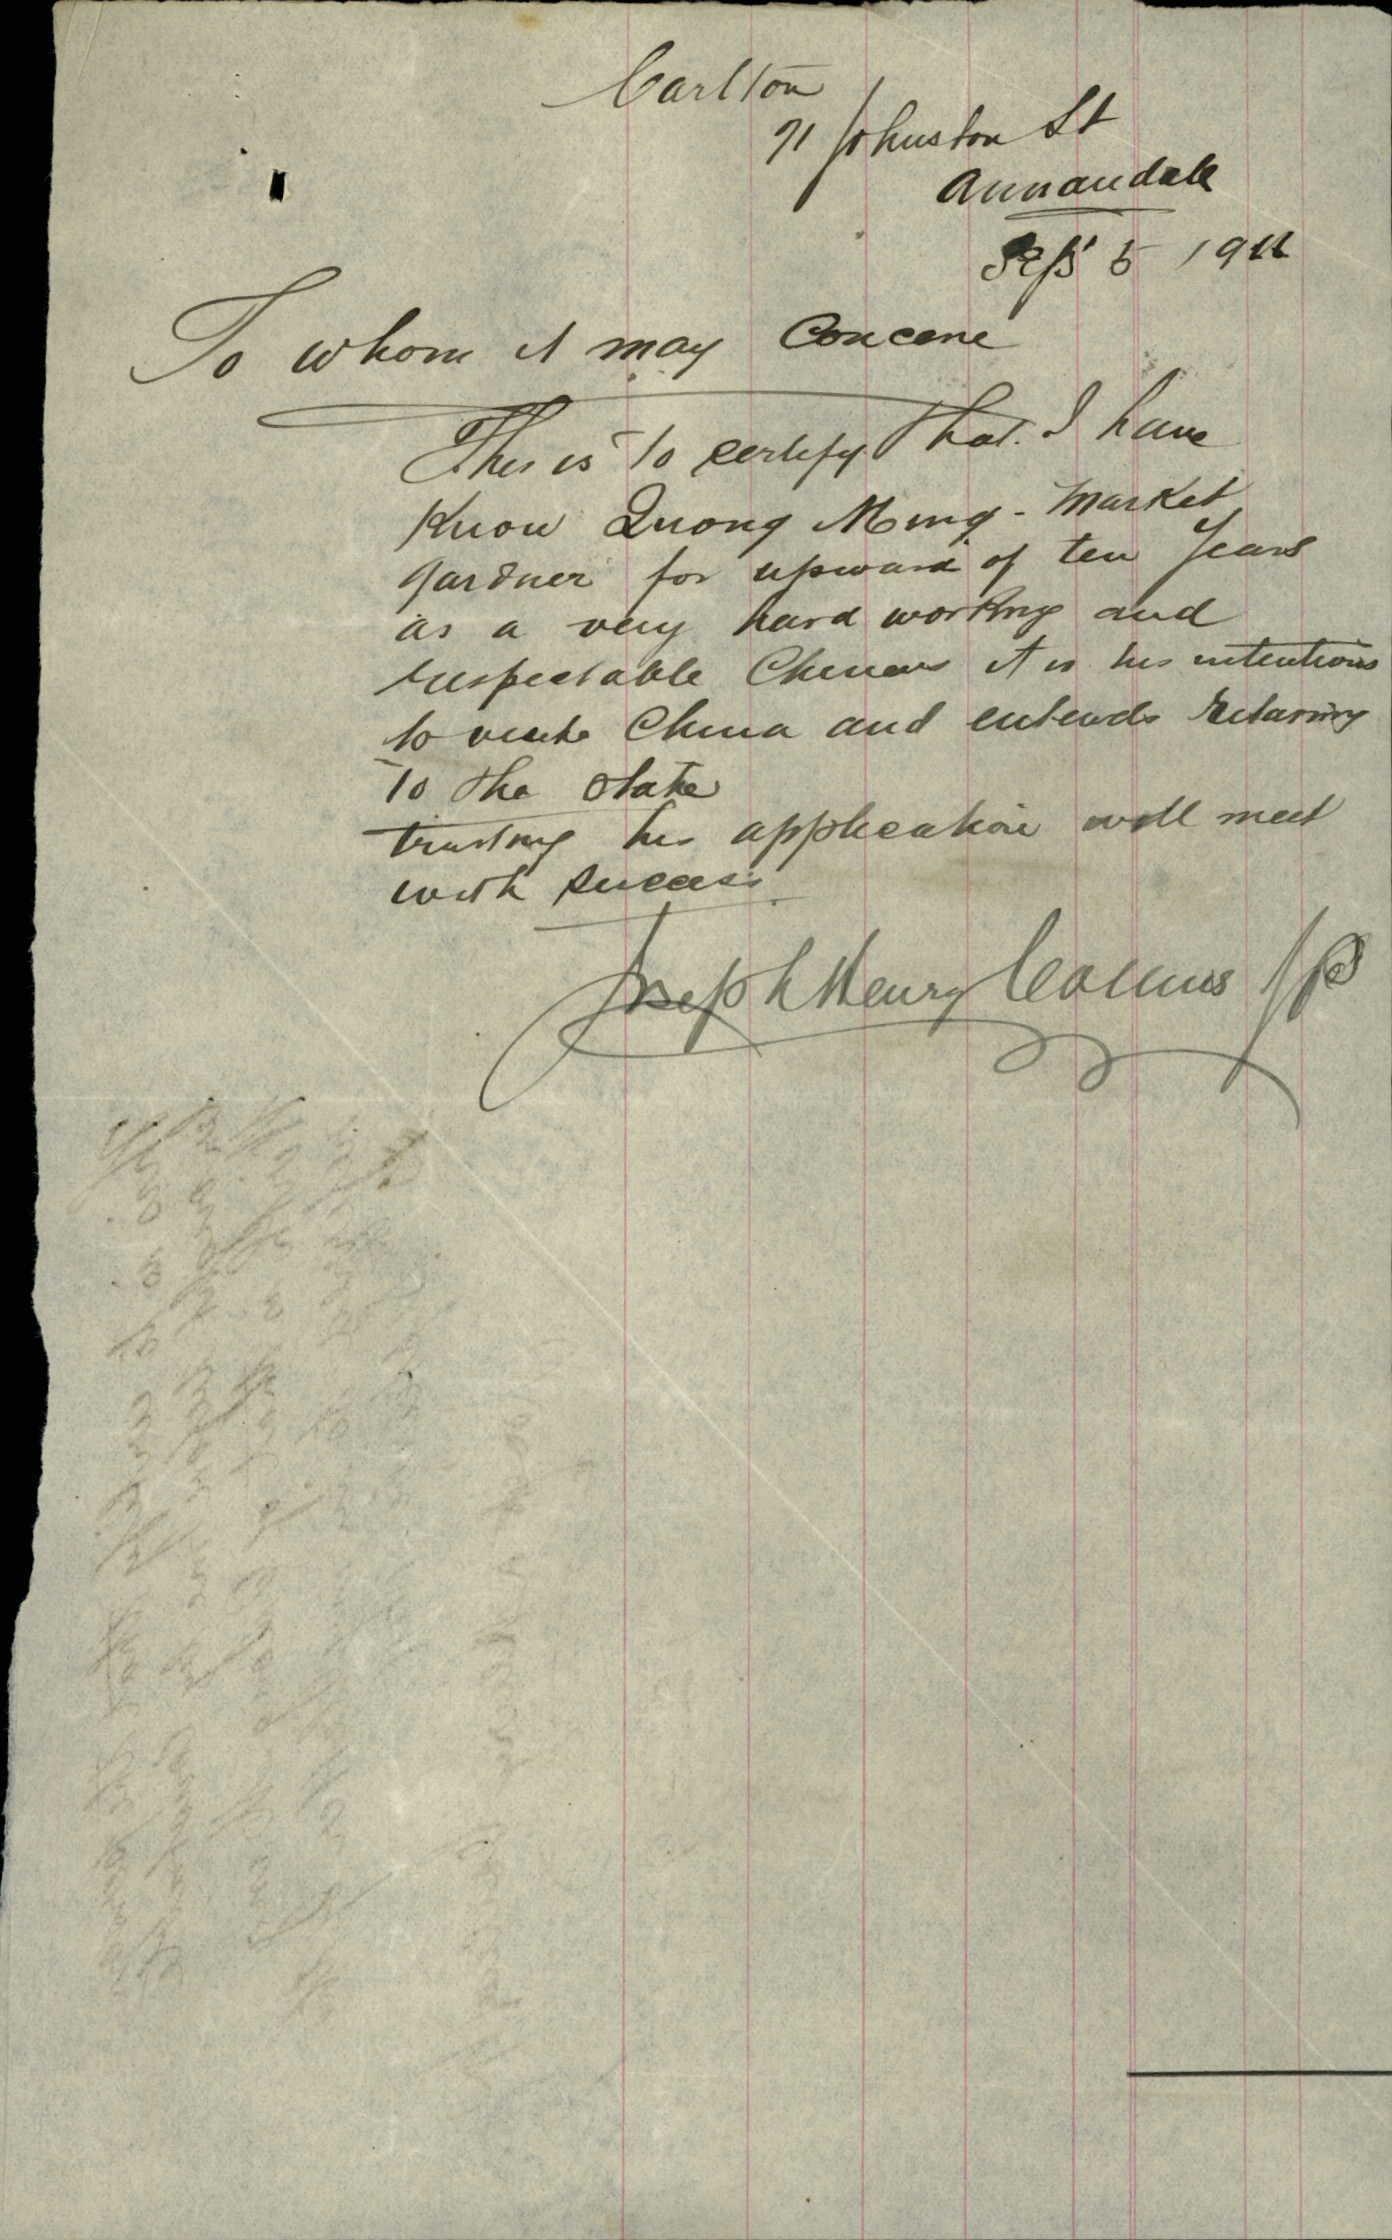 Carlton
71 Johnston St
Annandale
Sept 5 1911
To whom it may Concerne
This is to certify that I have
Know Quong Ming - Market
gardner for upward of ten Years
as a very hard working and
respectable Chinaes it is his intentions
to China and entends Retarning
to the State
trusting his application will meet
with success.
Joseph Henry Collins JP